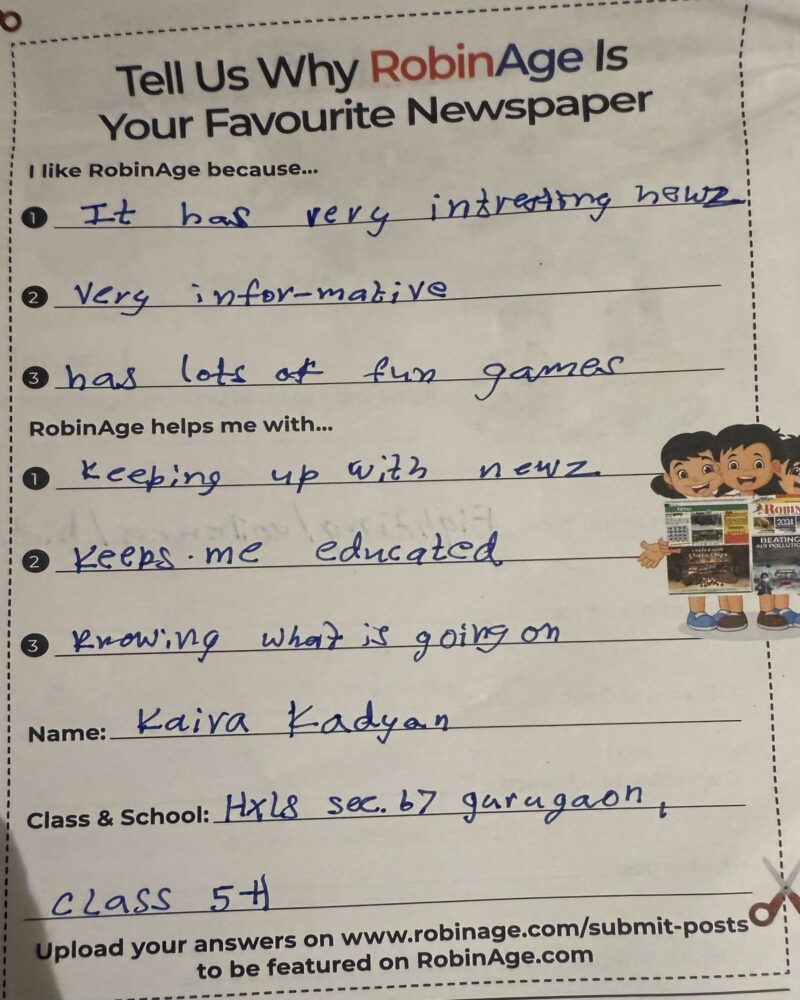 Tell Us Why RobinAge Is
Your Favourite Newspaper
I like RobinAge because...
1 It has very intresting newz
2 Very infor-mative
3 has lots of fun games
RobinAge helps me with...
1 keeping up with newz
2 keeps.me educated
3 knowing what is going on
Name: Kaira Kadyan
Class & School: HXLS sec. 67 gurugaon,
CLASS 5H
Upload your answers on www.robinage.com/submit-posts
to be featured on RobinAge.com
ROBIN
2024
BEATING
AIR POLLUTIO